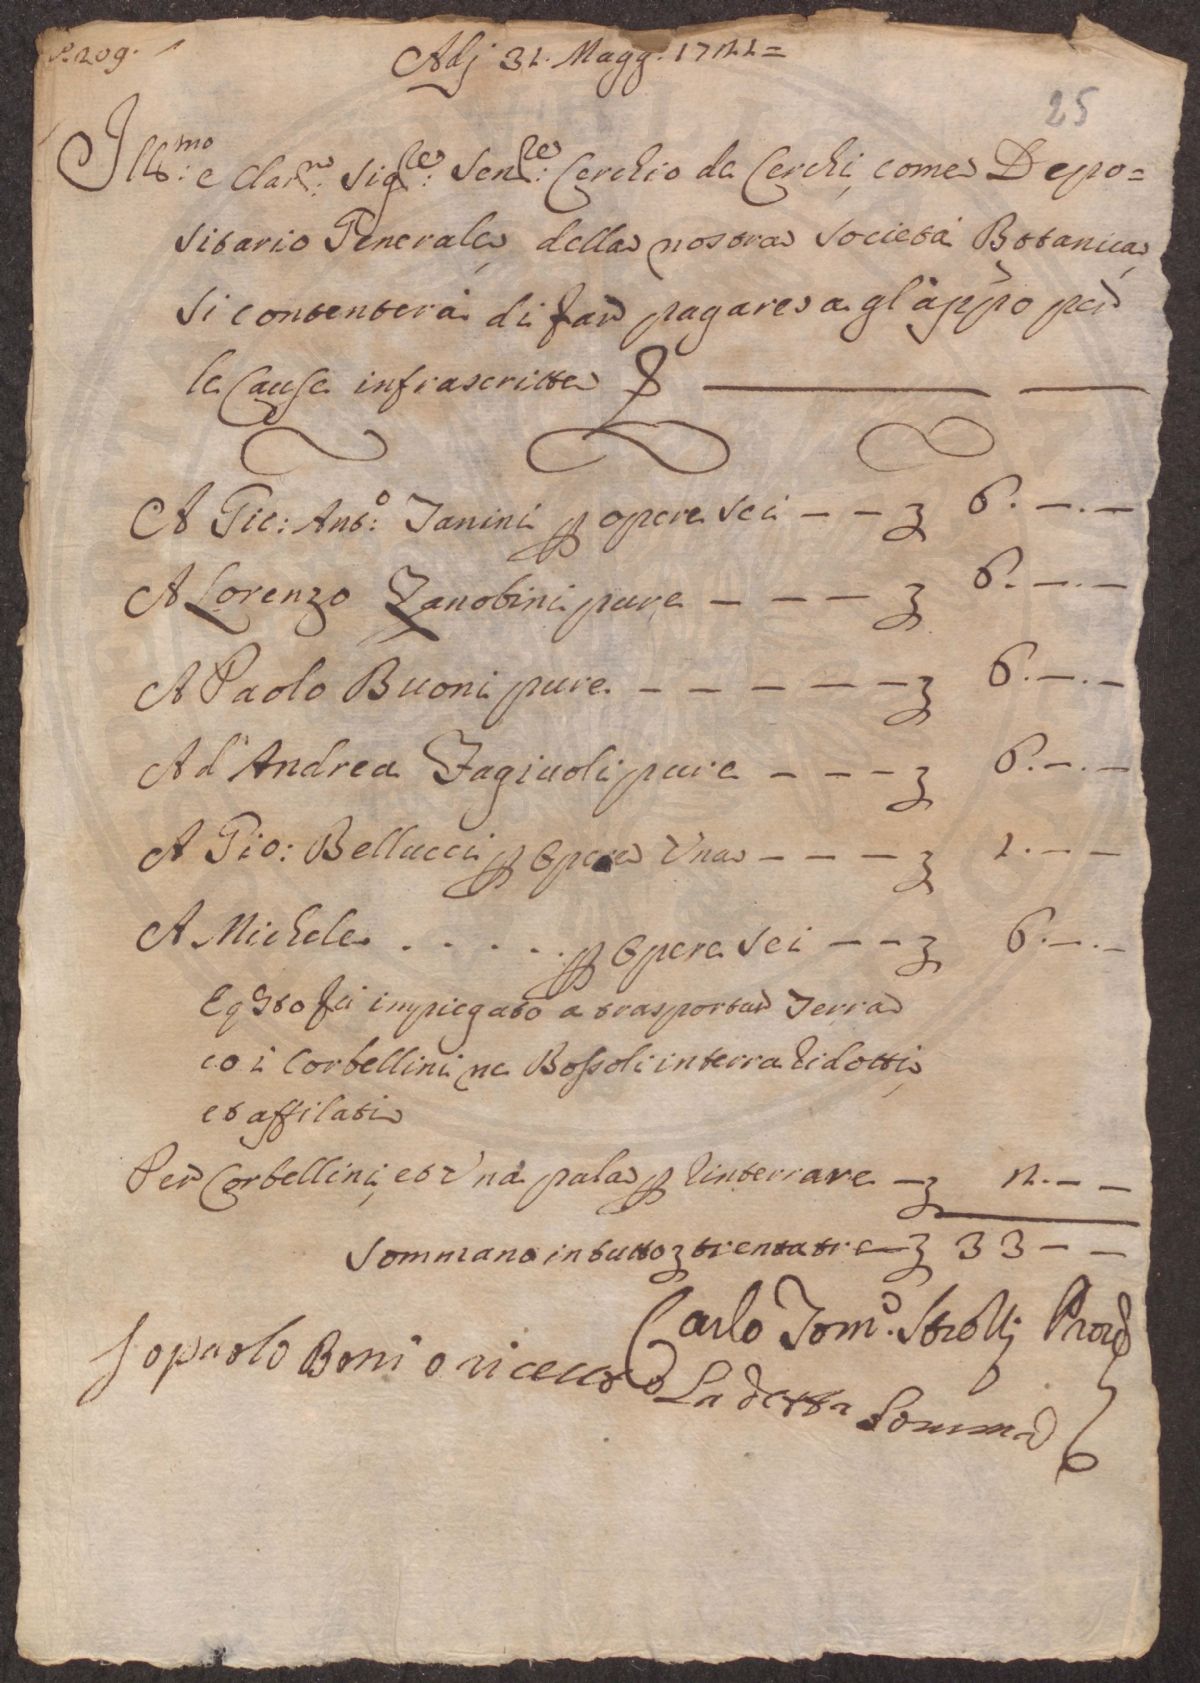 N. 209.
Adj 31. Magg. 1722 =
25
Ill.mo e Clar.mo Sig.re Sen.re Cerchio de Cerchi, come Depo=
sitario Generale, della nostra Società Botanica,
si contenterà di far pagare a gl'app.o per
le Cause infrascritte
A Gio: Ant.o Janini p opere sei - - 6. -.-
A Lorenzo Zanobini pure - - - 6. -.-
A Paolo Buoni pure. - - - - - 6. -.-
A d'Andrea Fagiuoli pure - - - 6. -.-
A Gio: Bellucci p Opera Una - - - 1. - -
A Michele . . . . . p Opere sei - - 6. -.-
E q.sto fu impiegato a trasportar Terra
co i Corbellini ne Bossoli interra ridotti,
et affilati
Per Corbellini, et Una pala p rinterrare - 2. - -
Sommano in tutto trentatre - 33 - -
Carlo Tom.o Strozzj Prov.e
Jo paolo Boni o riceuto La detta Somma